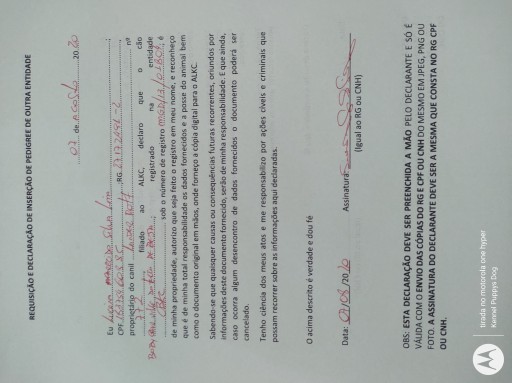 REQUISIÇÃO E DECLARAÇÃO DE INSERÇÃO DE PEDIGREE DE OUTRA ENTIDADE
07 de Agosto 2020
Eu
CPF RG
proprietário do canil nº
filiado ao ALKC, declaro que o cão
registrado na entidade
sob o número de registro é
de minha propriedade, autorizo que seja feito o registro em meu nome, e reconheço
que é de minha total responsabilidade os dados fornecidos e a posse do animal bem
como o documento original em mãos, onde forneço a cópia digital para o ALKC.
Sabendo-se que quaisquer causas ou consequências futuras recorrentes, oriundos por
informações deste documento fornecido, serão de minha responsabilidade. E que ainda,
caso ocorra algum desencontro de dados fornecidos o documento poderá ser
cancelado.
Tenho ciência dos meus atos e me responsabilizo por ações cíveis e criminais que
possam recorrer sobre as informações aqui declaradas.
O acima descrito é verdade e dou fé
Data: 07/08/2020 Assinatura
(Igual ao RG ou CNH)
OBS: ESTA DECLARAÇÃO DEVE SER PREENCHIDA A MÃO PELO DECLARANTE E SÓ É
VÁLIDA COM O ENVIO DAS CÓPIAS DO RG E CPF OU CNH DO MESMO EM JPEG, PNG OU
FOTO. A ASSINATURA DO DECLARANTE DEVE SER A MESMA QUE CONSTA NO RG CPF
OU CNH.
tirada no motorola one hyper
Kennel Puppys Dog